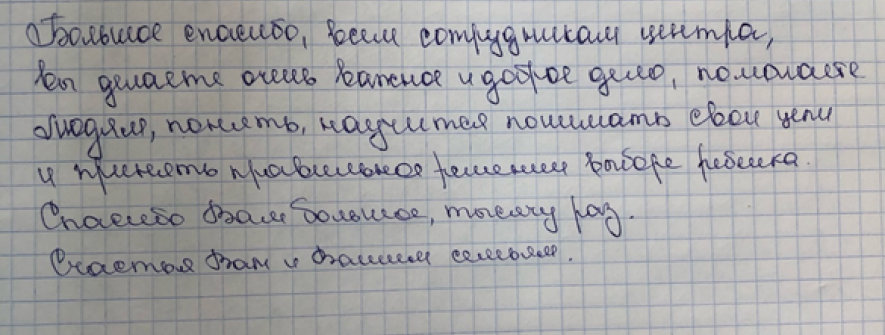 Большое спасибо, всем сотрудникам центра,
вы делаете очень важное и доброе дело, помогаете
людям, понять, научится понимать свои цели
и принять правильное решении выборе ребенка.
Спасибо Вам большое, тысячу раз.
Счастья Вам и Вашим семьям.